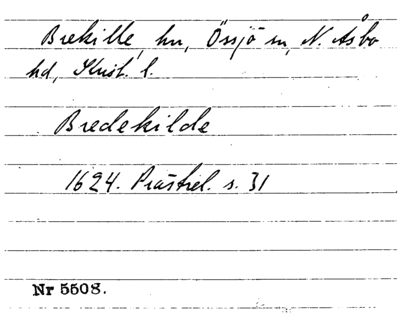 Brekille, hn, Össjö sn, N. Åsbo
hd, Krist. l.
Bredekilde
1624. Prästrel. s. 31
Nr 5508.